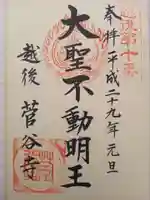 奉拝 平成二十九年元旦
大聖不動明王
越後 菅谷寺